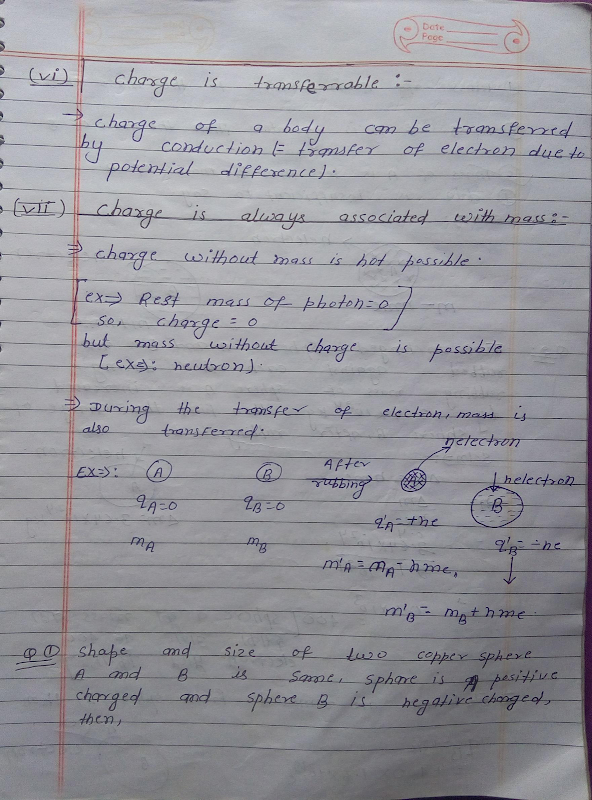 Date
Page
(vi) charge is transferrable :-
→ charge of a body can be transferred
by conduction (= transfer of electron due to
potential difference).
(vii) charge is always associated with mass:-
⇒ charge without mass is not possible.
[ex⇒ Rest mass of photon=0
so, charge = 0]
but mass without charge is possible
[ex⇒: neutron).
⇒ During the transfer of electron, mass is
also transferred.
nelectron
EX⇒: A B After rubbing A nelectron
B
qA=0 qB=0 q'A=+ne
mA mB q'B=-ne
m'A = mA - nme,
m'B = mB + nme.
Q① shape and size of two copper sphere
A and B is same, sphare is A positive
charged and sphere B is negative charged,
then,